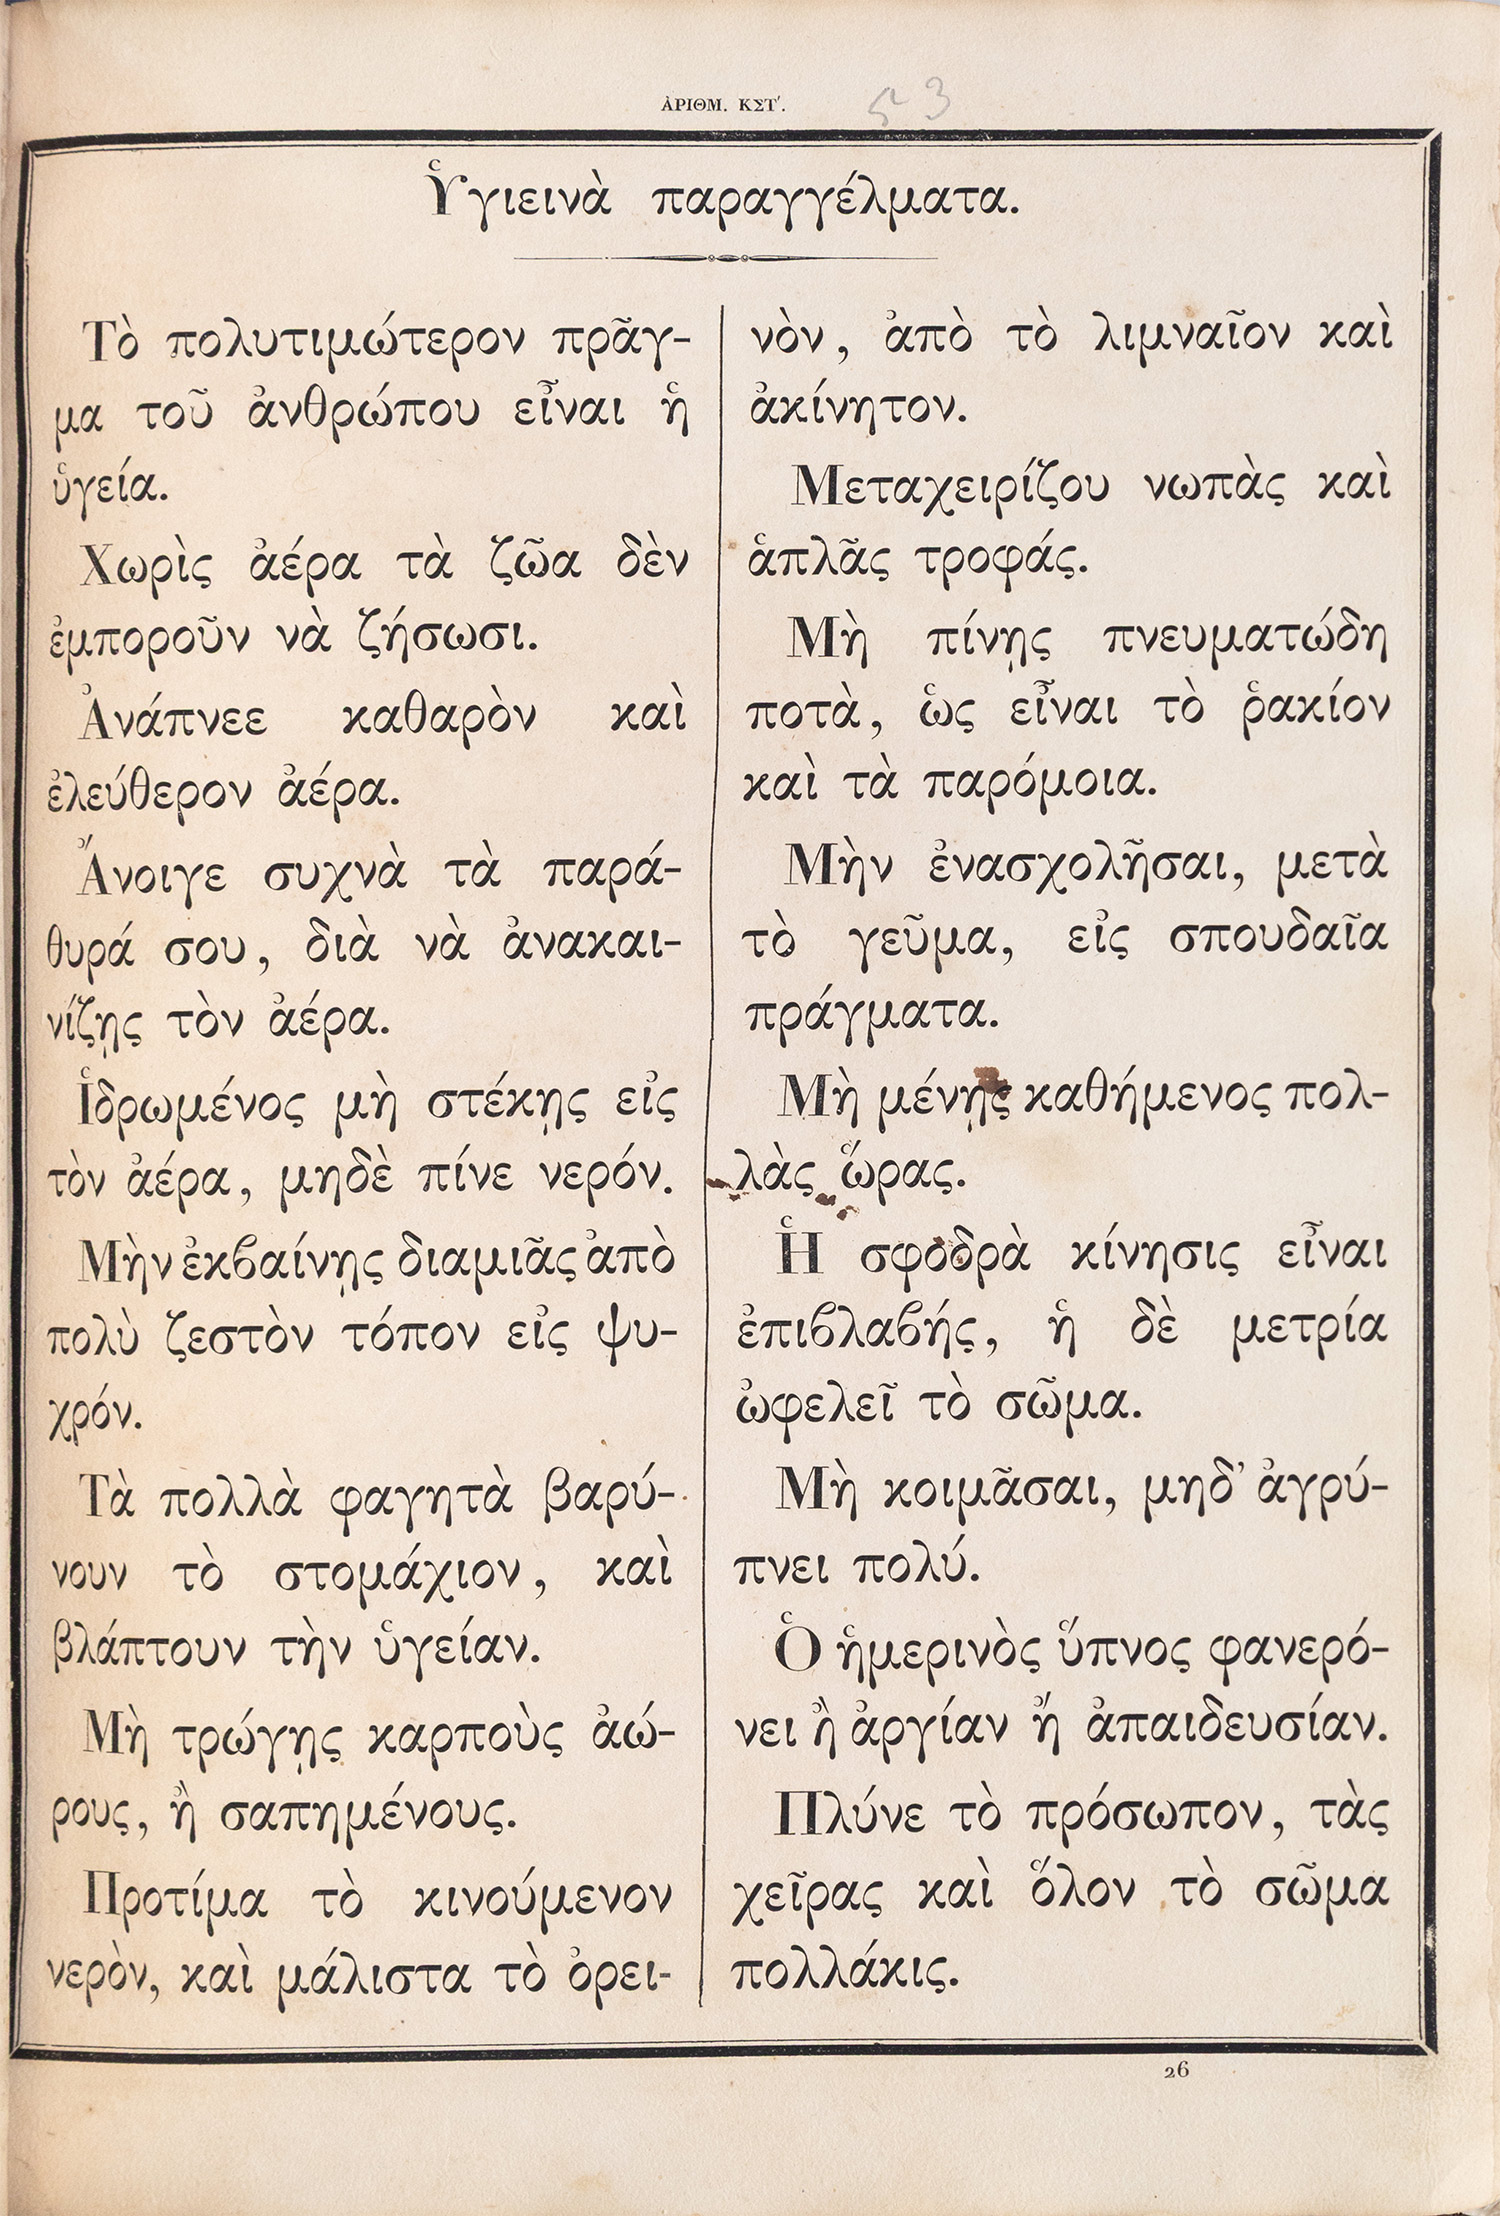 ἈΡΙΘΜ. ΚΣΤʹ.
53
Ὑγιεινὰ παραγγέλματα.
Τὸ πολυτιμώτερον πρᾶγ-
μα τοῦ ἀνθρώπου εἶναι ἡ
ὑγεία.
Χωρὶς ἀέρα τὰ ζῶα δὲν
ἐμποροῦν νὰ ζήσωσι.
Ἀνάπνεε καθαρὸν καὶ
ἐλεύθερον ἀέρα.
Ἄνοιγε συχνὰ τὰ παρά-
θυρά σου, διὰ νὰ ἀνακαι-
νίζῃς τὸν ἀέρα.
Ἱδρωμένος μὴ στέκῃς εἰς
τὸν ἀέρα, μηδὲ πίνε νερόν.
Μὴν ἐκϐαίνῃς διαμιᾶς ἀπὸ
πολὺ ζεστὸν τόπον εἰς ψυ-
χρόν.
Τὰ πολλὰ φαγητὰ βαρύ-
νουν τὸ στομάχιον, καὶ
βλάπτουν τὴν ὑγείαν.
Μὴ τρώγῃς καρποὺς ἀώ-
ρους, ἢ σαπημένους.
Προτίμα τὸ κινούμενον
νερὸν, καὶ μάλιστα τὸ ὀρει-
νὸν, ἀπὸ τὸ λιμναῖον καὶ
ἀκίνητον.
Μεταχειρίζου νωπὰς καὶ
ἁπλᾶς τροφάς.
Μὴ πίνῃς πνευματώδη
ποτὰ, ὡς εἶναι τὸ ῥακίον
καὶ τὰ παρόμοια.
Μὴν ἐνασχολῆσαι, μετὰ
τὸ γεῦμα, εἰς σπουδαῖα
πράγματα.
Μὴ μένῃς καθήμενος πολ-
λὰς ὥρας.
Ἡ σφοδρὰ κίνησις εἶναι
ἐπιϐλαϐής, ἡ δὲ μετρία
ὠφελεῖ τὸ σῶμα.
Μὴ κοιμᾶσαι, μηδ' ἀγρύ-
πνει πολύ.
Ὁ ἡμερινὸς ὕπνος φανερό-
νει ἢ ἀργίαν ἤ ἀπαιδευσίαν.
Πλύνε τὸ πρόσωπον, τὰς
χεῖρας καὶ ὅλον τὸ σῶμα
πολλάκις.
26